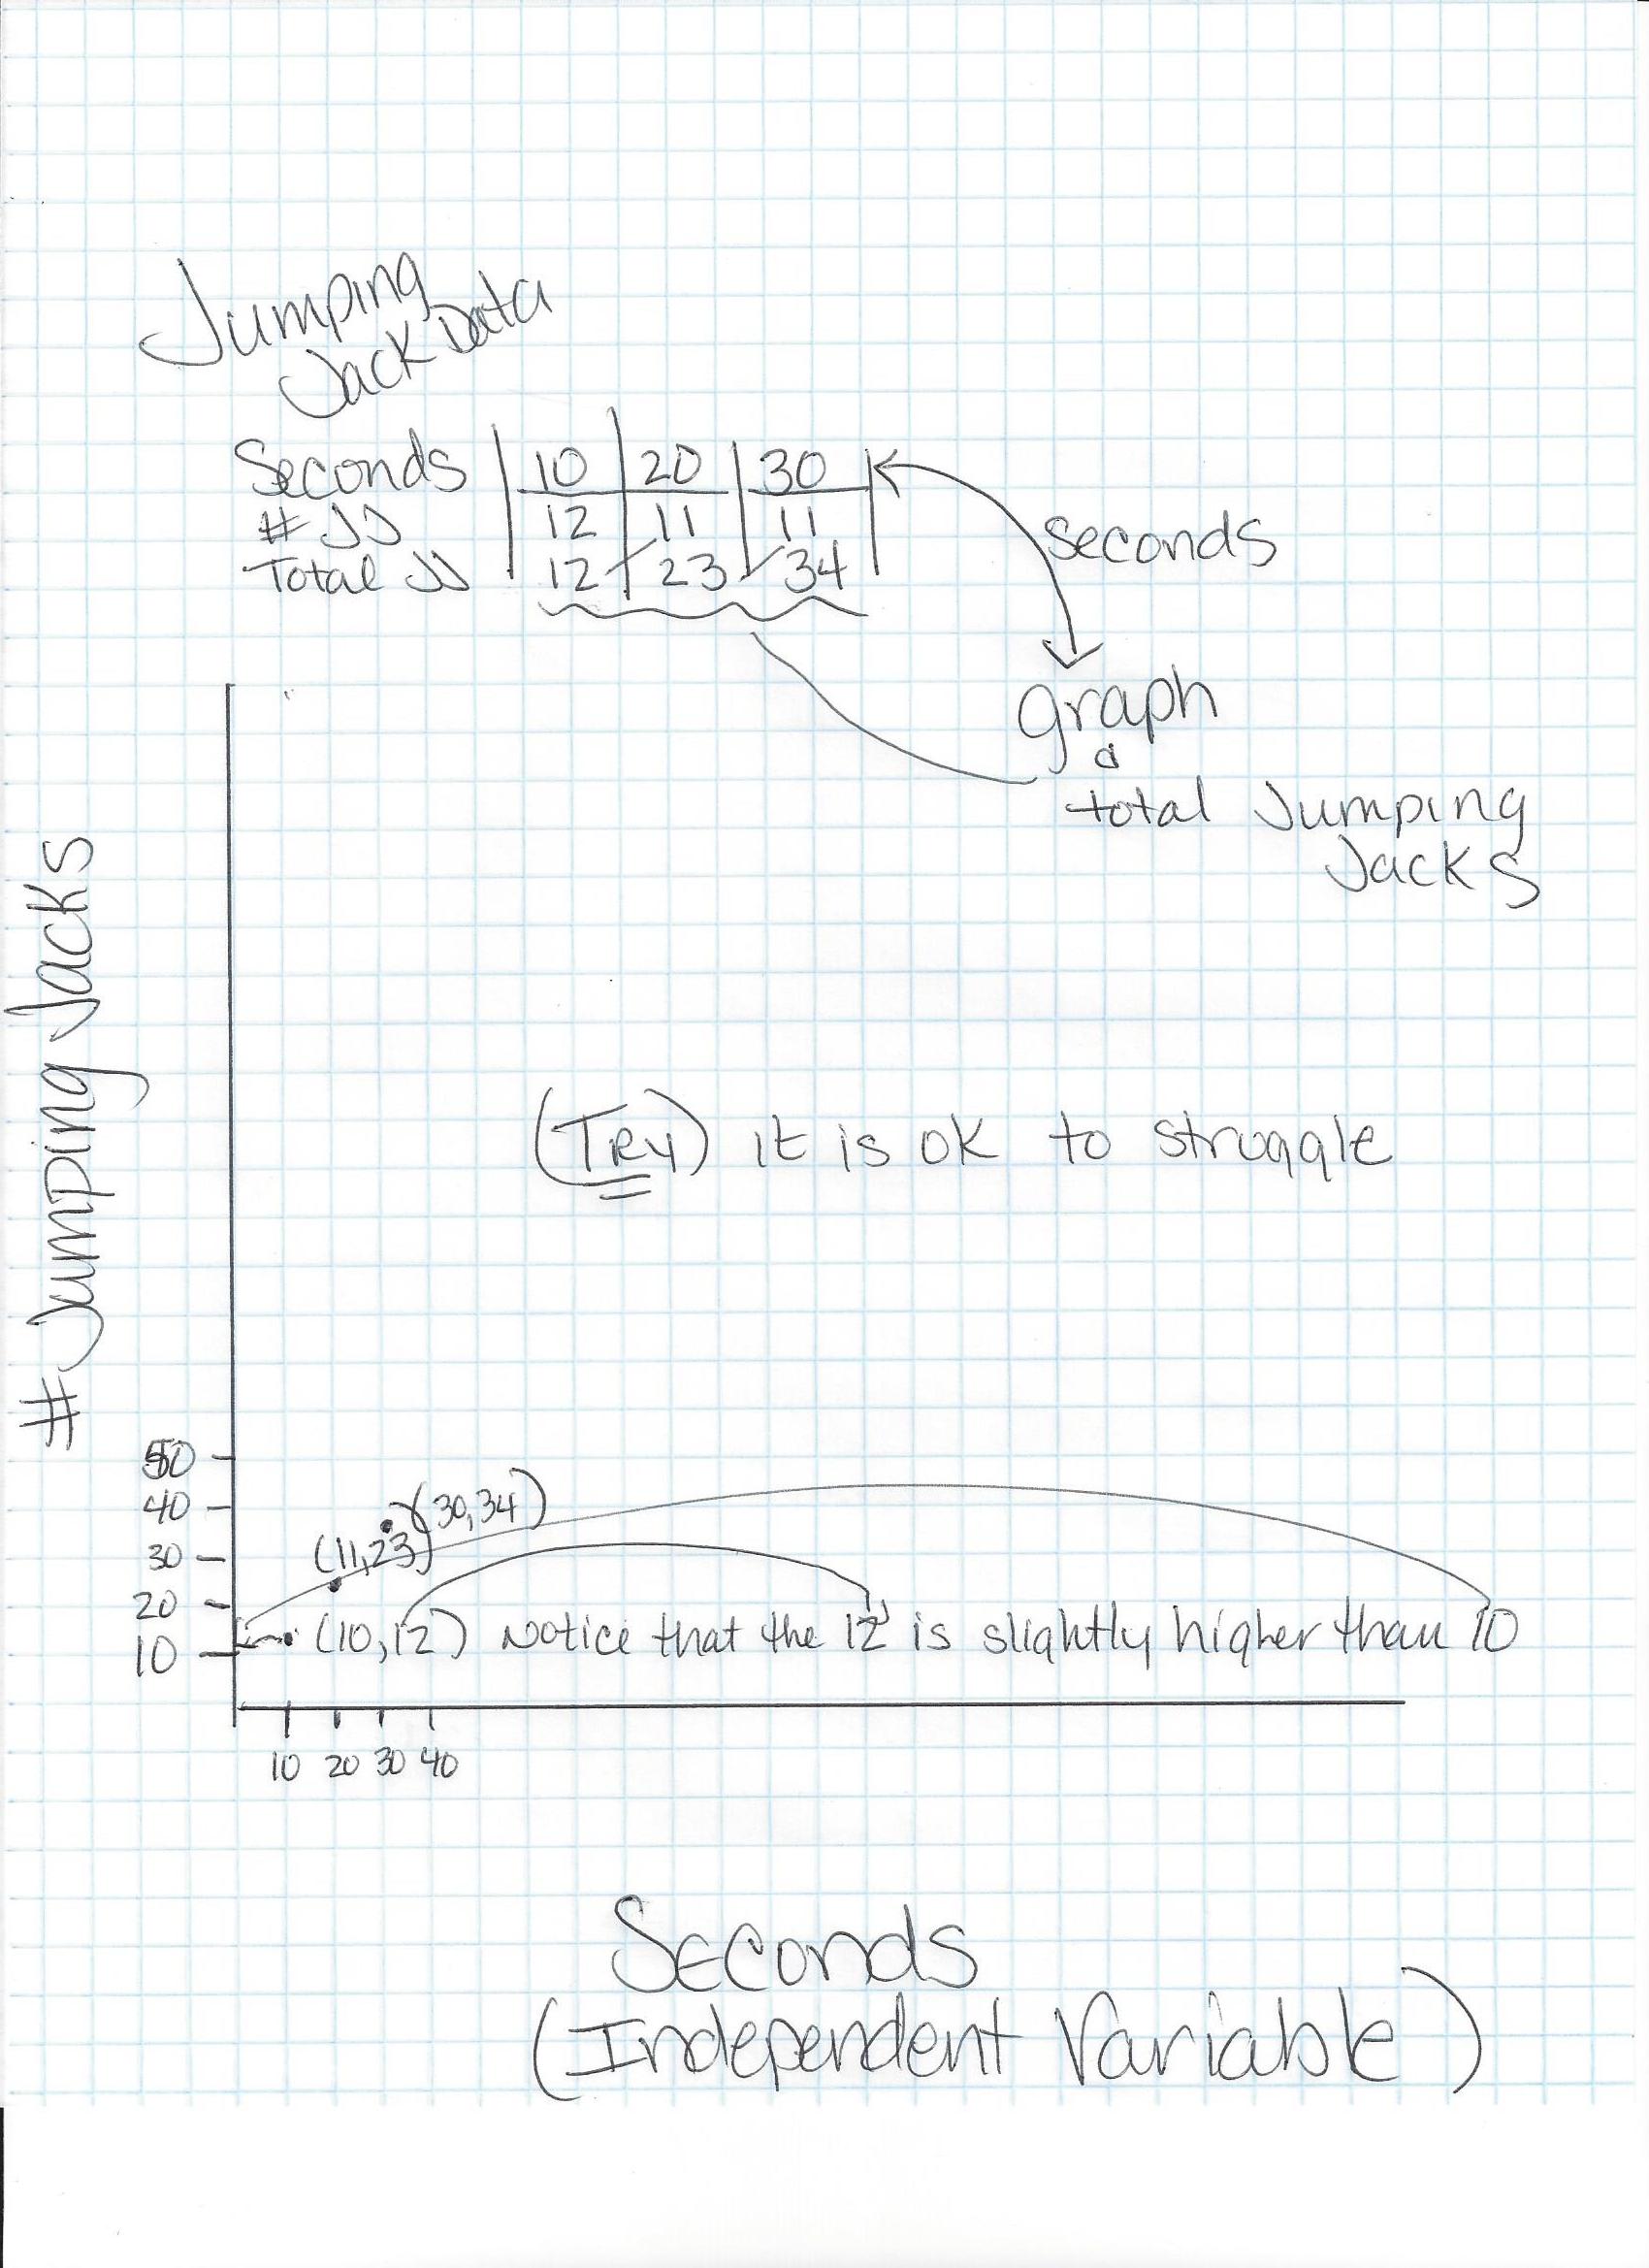 Jumping
Jack Data
Seconds 10 20 30
# JJ 12 11 11
Total JJ 12 23 34
seconds
graph
&
total Jumping
Jacks
# Jumping Jacks
(TRY) it is ok to struggle
50
40 (30,34)
30 (11,23)
20
10 (10,12) Notice that the 12 is slightly higher than 10
10 20 30 40
Seconds
(Independent Variable)